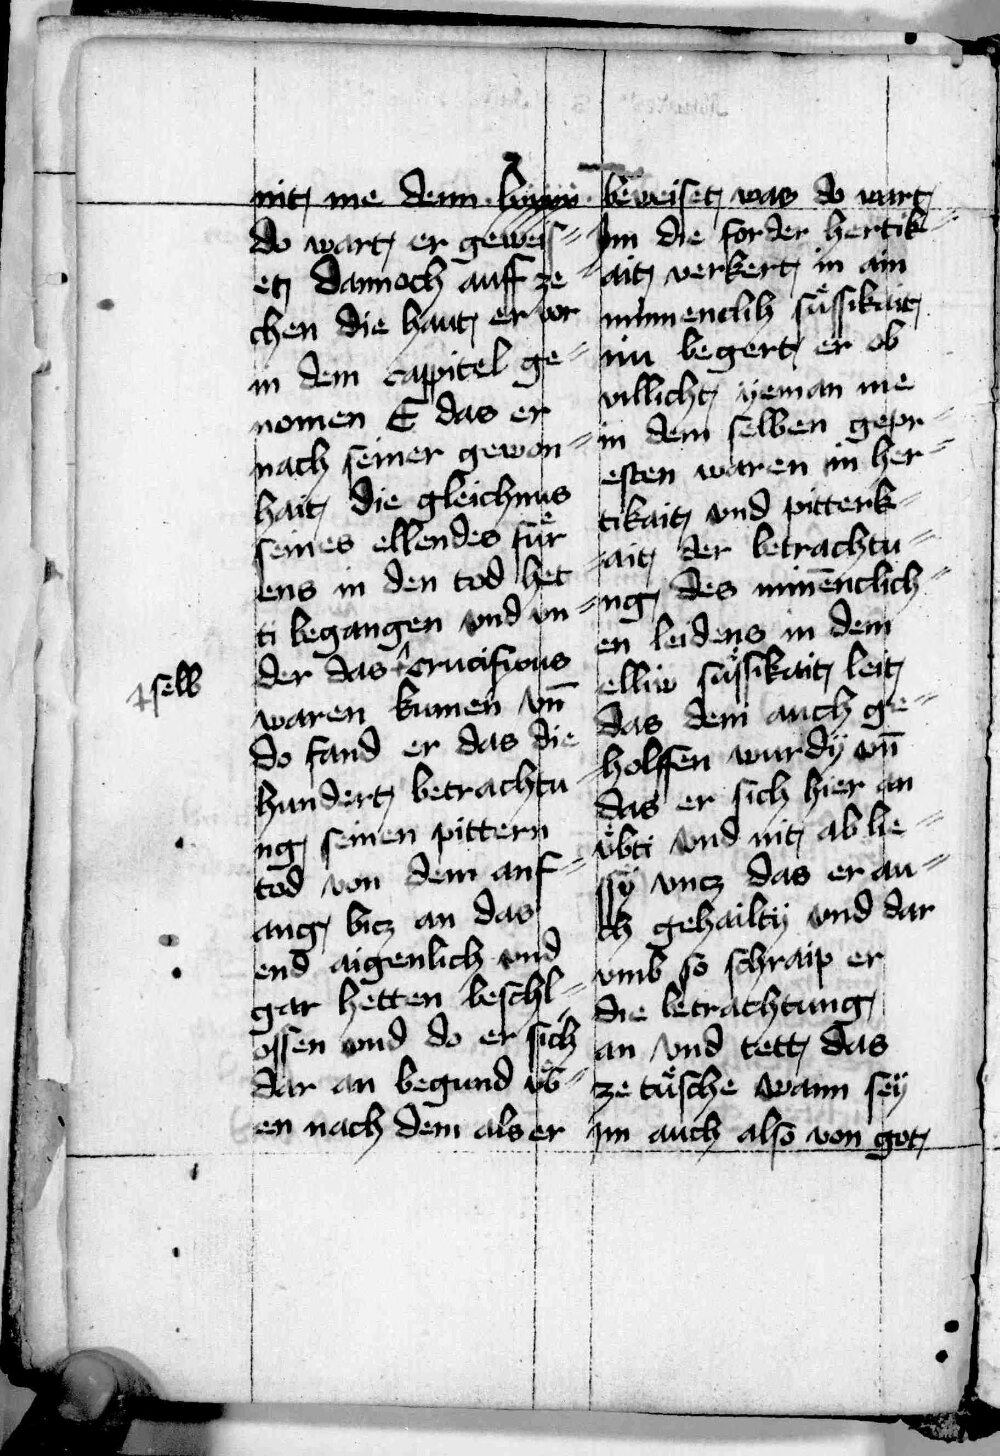 nit me denn
do wart er geweis=
et dannoch auff ze
chen die haut er vor
in dem cappitel ge=
nomen E das er
nach seiner gewon=
hait die gleichnus
seines ellendes fuͤr
ens in den tod het
ti begangen vnd vn=
der das crucifixus
selb
waren kumen vn̄
do fand er das die
hundert betrachtu
ng seinen pittern
tod von dem anf=
ang bicz an das
end aigenlich vnd
gar hetten beschl=
ossen vnd do er sich
dar an begund uͤb=
en nach dem als er
beweiset was do wart
Im die forder hertik=
ait verkert in ain
minnenclih suͤssikait
nu begert er ob
villicht yeman me
in dem selben gepr=
esten waren in her=
tikait vnd pitterk=
ait der betrachtu=
ng des minēnclich=
en leidens in dem
elliw suͤssikait leit
das dem auch ge=
holffen wurdÿ vn̄
das er sich hier an
uͤbti vnd nit ab lie=
ssÿ vncz das er au=
ch gehailtÿ vnd dar
vmb so schraip er
die betrachtung
an vnd tett das
ze tuͤsche wann seÿ
Im auch also von got